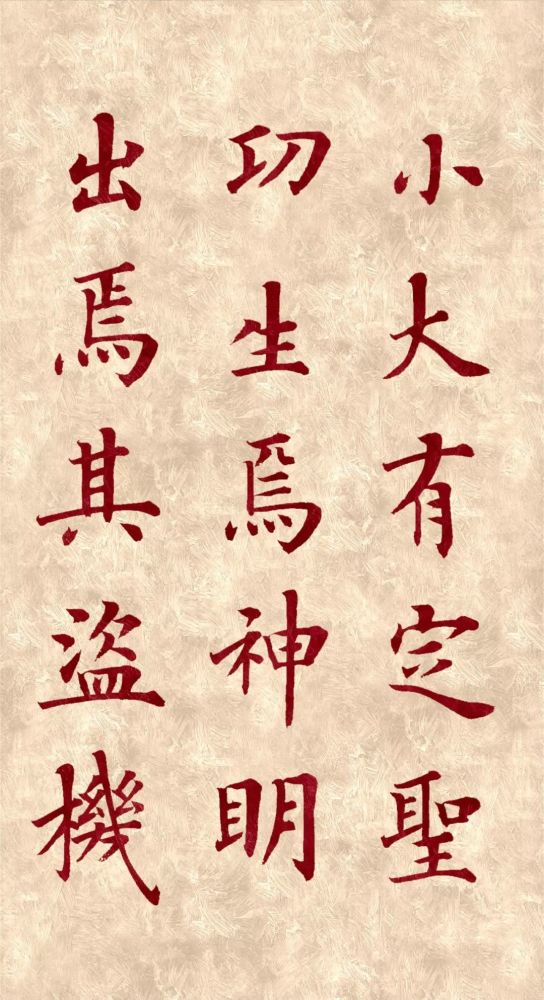 小大有定聖
功生焉神明
出焉其盜機